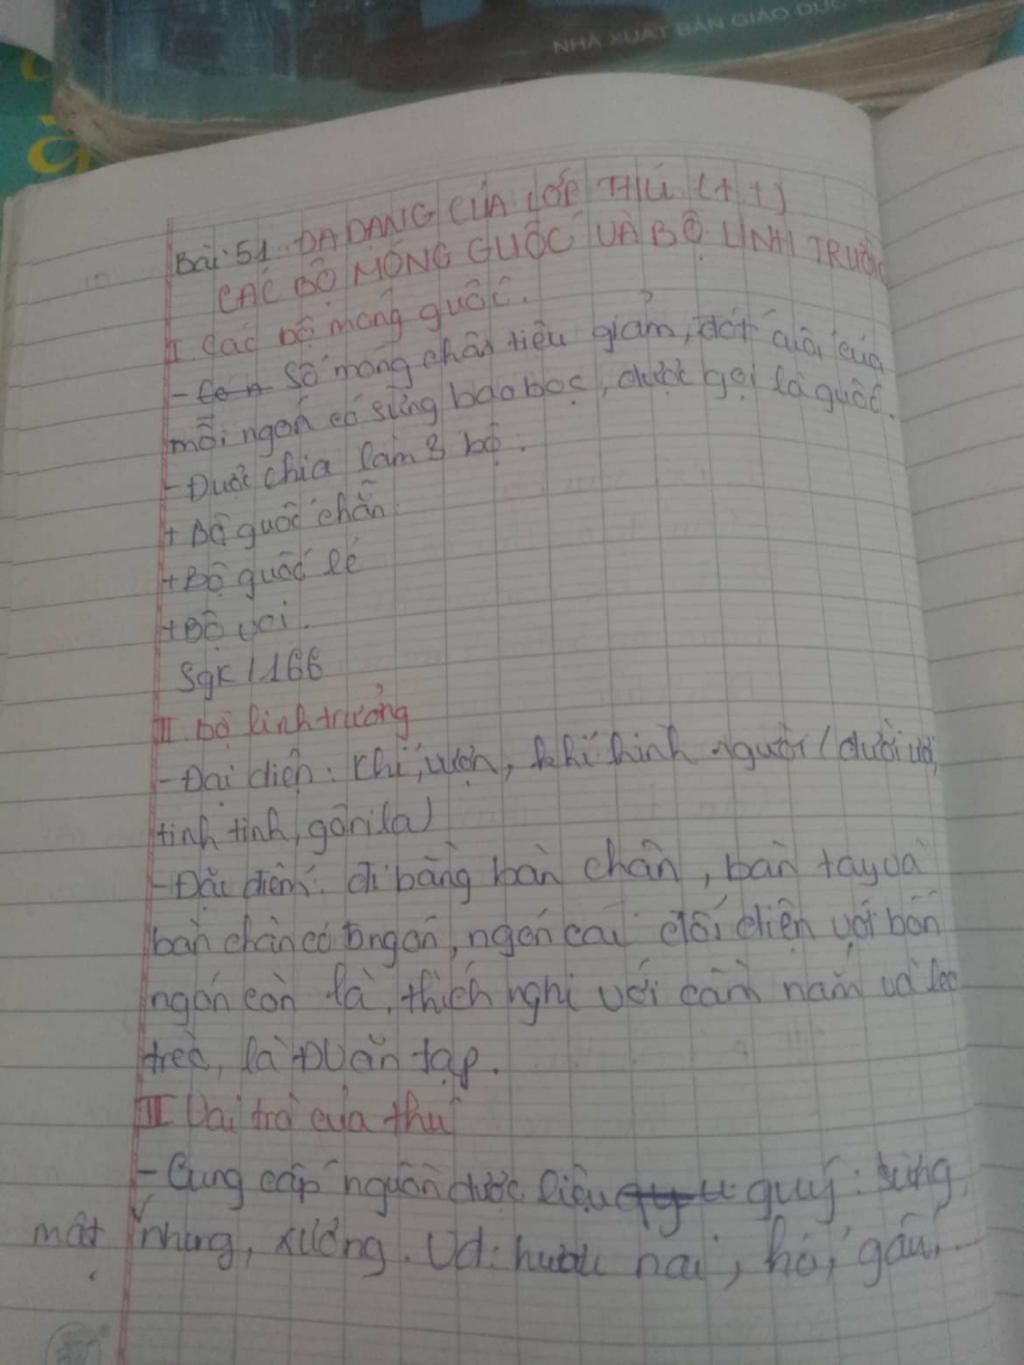 NHÀ XUẤT BẢN GIÁO DỤC
Bài 51 ĐA DẠNG CỦA LỚP THÚ (++)
CÁC BỘ MÓNG GUỐC VÀ BỘ LINH TRƯỞNG
I. Các bộ móng guốc.
- Số móng chân tiêu giảm, đốt cuối của
mỗi ngón có sừng bao bọc, được gọi là guốc.
- Đươc chia làm 3 bộ:
+ Bộ guốc chẵn
+ Bộ guốc lẻ
+ Bộ voi.
Sgk / 166
II. bộ linh trưởng
- Đại diện: Khỉ, vượn, khỉ hình người (đười ươi,
tinh tinh, gôrila)
- Đặc điểm: đi bằng bàn chân, bàn tay và
bàn chân có 5 ngón, ngón cái đối diện với bốn
ngón còn lại, thích nghi với cầm nắm và leo
trèo, là ĐV ăn tạp.
III Vai trò của thú
- Cung cấp nguồn dược liệu quý: sừng,
mật nhung, xương. Vd: hươu nai, hổ, gấu...